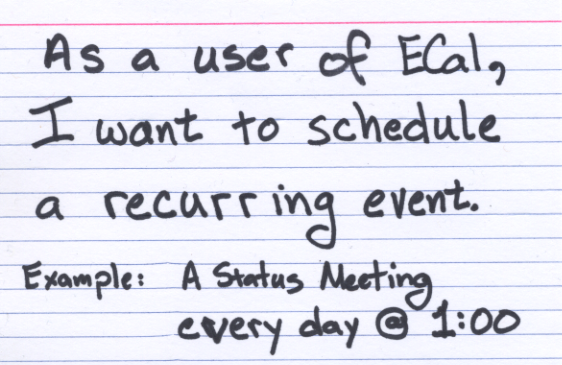 As a user of ECal,
I want to schedule
a recurring event.
Example: A Status Meeting
every day @ 1:00